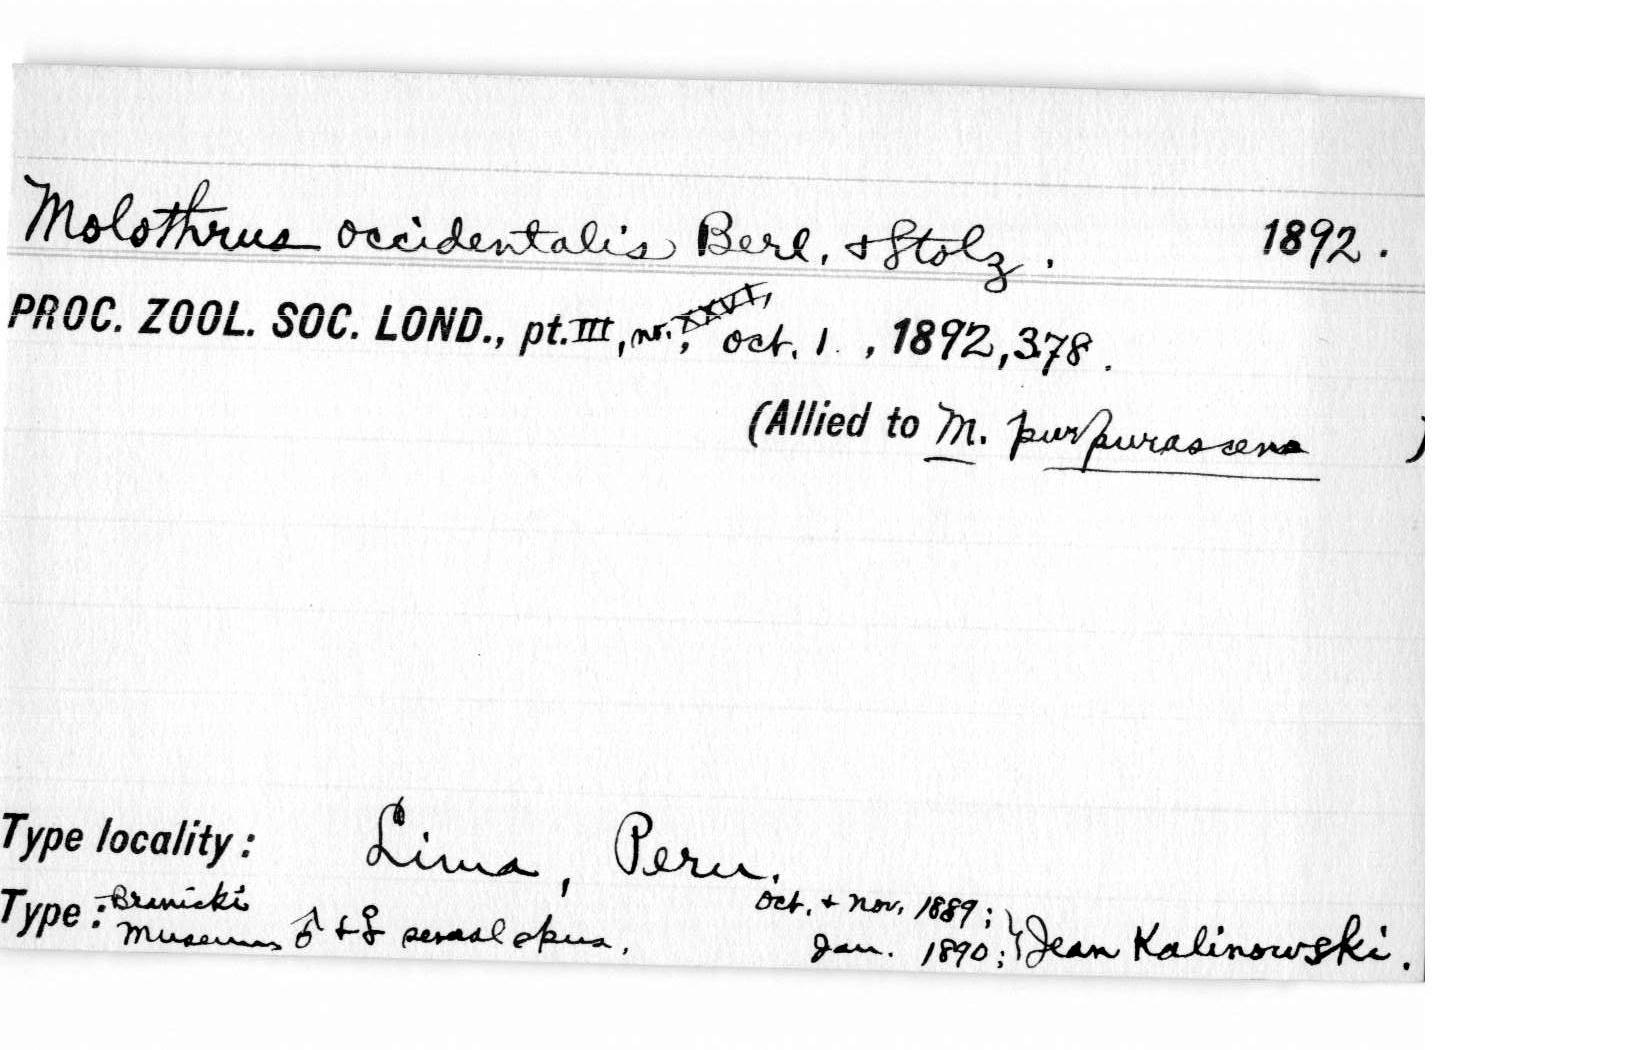 Molothrus occidentalis Berl. & Stolz. 1892.
PROC. ZOOL. SOC. LOND., pt. III, nr. XXVI, Oct. 1, 1892, 378.
(Allied to M. purpurascens )
Type locality: Lima, Peru.
Type: Branicki Museum ♂ & ♀ seval spns. Oct. & Nov. 1889; Jan. 1890; } Jean Kalinowski.